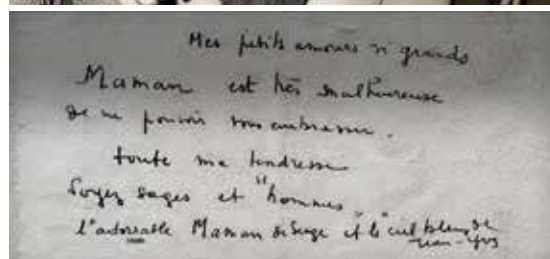 Mes petits amours si grands
Maman est très malheureuse
de ne pouvoir vous embrasser.
toute ma tendresse
Soyez sages et "hommes"
l'adorable Maman de Serge et "le" ciel bleu de
Jean-Yves